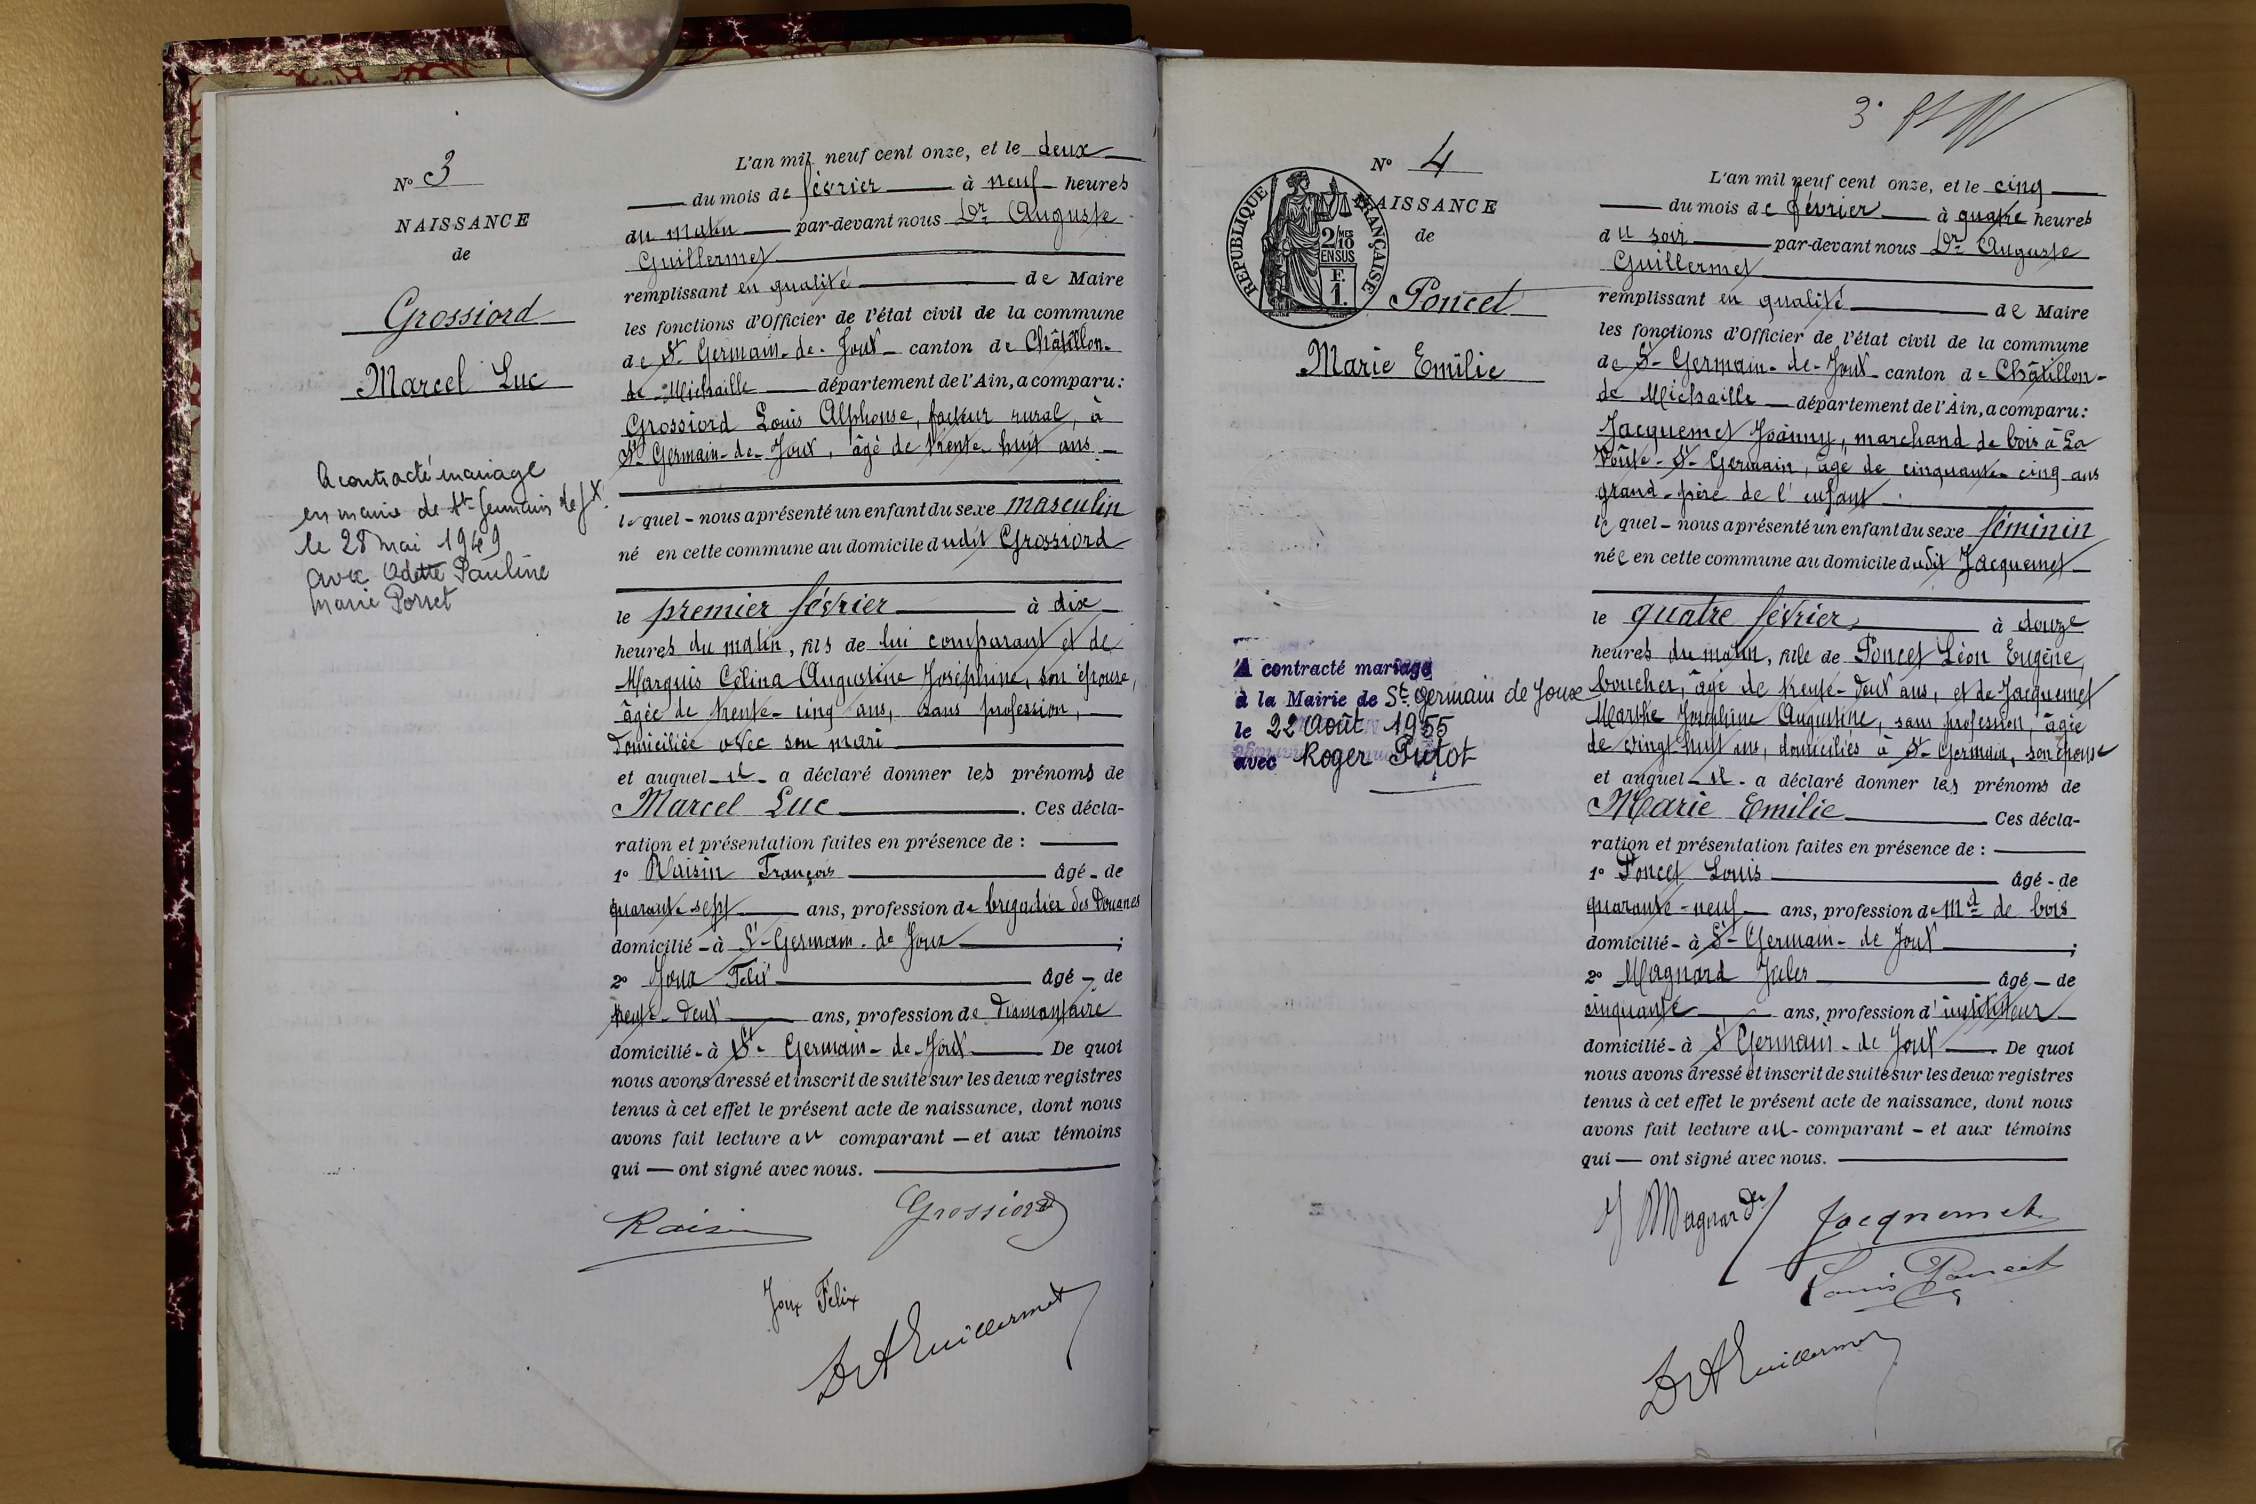 N° 3
NAISSANCE
de
Grossiord
Marcel Luc
A contracté mariage
en mairie de St Germain de Jx.
le 28 mai 1949
avec Odette Pauline
Marie Ponset
L'an mil neuf cent onze, et le deux
du mois de février à neuf heures
du matin par-devant nous Dr Auguste
Guillermet
remplissant en qualité de Maire
les fonctions d'Officier de l'état civil de la commune
de St Germain-de-Joux canton de Châtillon-
de-Michaille département de l'Ain, a comparu:
Grossiord Louis Alphonse, facteur rural, à
St Germain-de-Joux, âgé de trente-huit ans.
lequel - nous a présenté un enfant du sexe masculin
né en cette commune au domicile dudit Grossiord
le premier février à dix
heures du matin, fils de lui comparant et de
Marquis Célina Augustine Joséphine, son épouse,
âgée de trente-cinq ans, sans profession,
domiciliée avec son mari
et auquel il a déclaré donner les prénoms de
Marcel Luc. Ces décla-
ration et présentation faites en présence de :
1° Raisin François âgé - de
quarante sept ans, profession de brigadier des Douanes
domicilié - à St-Germain-de Joux ;
2° Joux Félix âgé - de
trente-deux ans, profession de diamantaire
domicilié - à St-Germain-de-Joux De quoi
nous avons dressé et inscrit de suite sur les deux registres
tenus à cet effet le présent acte de naissance, dont nous
avons fait lecture au comparant - et aux témoins
qui - ont signé avec nous.
Raisin Grossiord
Joux Félix
Dr A Guillermet
3°
N° 4
NAISSANCE
de
RÉPUBLIQUE FRANÇAISE
2/10 MES
EN SUS
F.
1.
Poncet
Marie Emilie
A contracté mariage
à la Mairie de St Germain de Joux
le 22 Août 1955
avec Roger Putot
L'an mil neuf cent onze, et le cinq
du mois de février à quatre heures
du soir par-devant nous Dr Auguste
Guillermet
remplissant en qualité de Maire
les fonctions d'Officier de l'état civil de la commune
de St-Germain-de-Joux canton de Châtillon-
de Michaille département de l'Ain, a comparu:
Jacquemet Joanny, marchand de bois à La
Voûte-St-Germain, âgé de cinquante-cinq ans
grand-père de l'enfant.
lequel - nous a présenté un enfant du sexe féminin
née en cette commune au domicile dudit Jacquemet
le quatre février à douze
heures du matin, fille de Poncet Léon Eugène,
boucher, âgé de trente-deux ans, et de Jacquemet
Marthe Joséphine Augustine, sans profession, âgée
de vingt huit ans, domiciliés à St-Germain, son épouse
et auquel il a déclaré donner les prénoms de
Marie Emilie Ces décla-
ration et présentation faites en présence de :
1° Poncet Louis âgé - de
quarante-neuf ans, profession de Md de bois
domicilié - à St-Germain-de Joux ;
2° Magnard Jules âgé - de
cinquante ans, profession d'instituteur
domicilié - à St Germain-de Joux. De quoi
nous avons dressé et inscrit de suite sur les deux registres
tenus à cet effet le présent acte de naissance, dont nous
avons fait lecture au - comparant - et aux témoins
qui - ont signé avec nous.
J Magnard Jacquemet
Louis Poncet
Dr A Guillermet